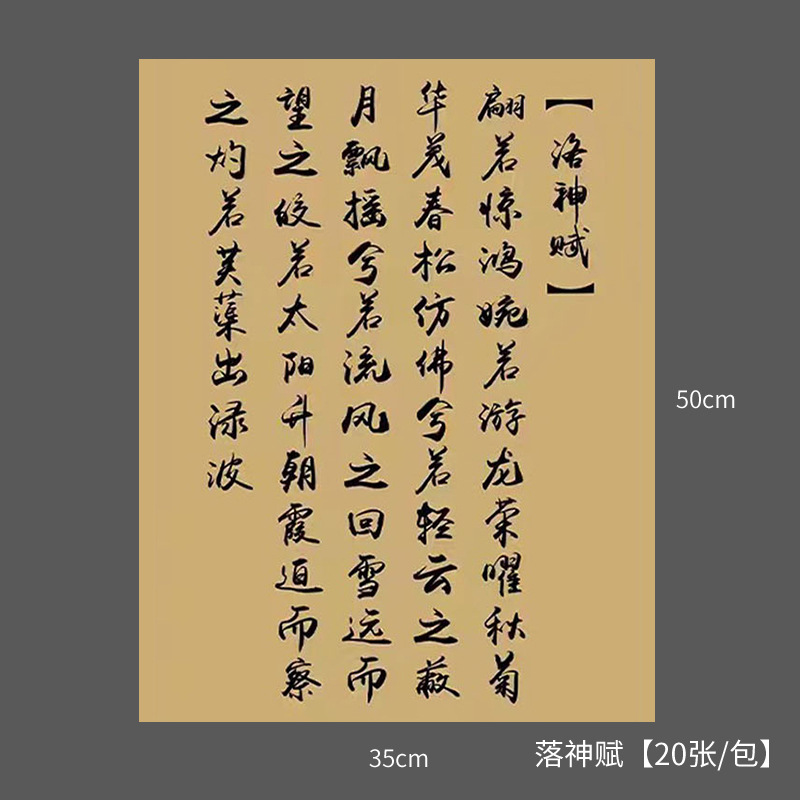 【洛神赋】
翩若惊鸿婉若游龙荣曜秋菊
华茂春松仿佛兮若轻云之蔽
月飘摇兮若流风之回雪远而
望之皎若太阳升朝霞迫而察
之灼若芙蕖出渌波
50cm
35cm
落神赋【20张/包】